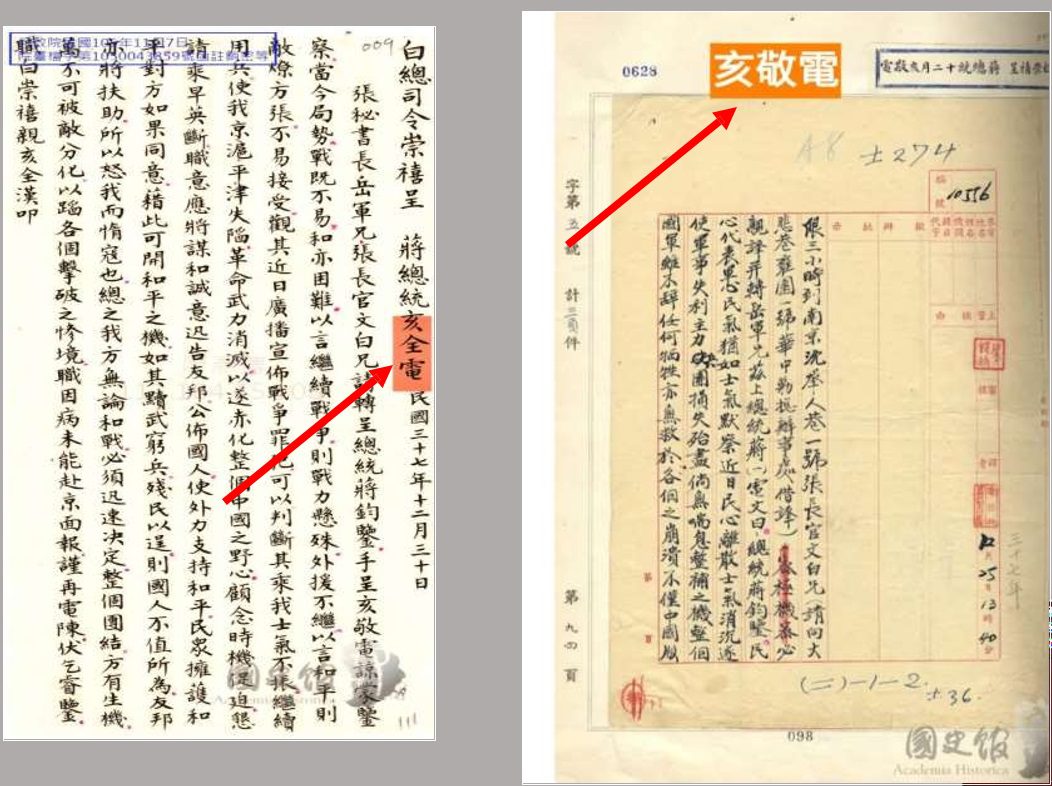 009
白總司令崇禧呈 蔣總統亥全電 民國三十七年十二月三十日
張秘書長岳軍兄張長官文白兄請轉呈總統蔣鈞鑒手呈亥敬電諒蒙鑒
察當今局勢戰既不易和亦困難以言繼續戰爭則戰力懸殊外援不繼以言和平則
敵燎方張不易接受觀其近日廣播宣佈戰爭罪犯可以判斷其乘我士氣不振繼續
用兵使我京滬平津失陷革命武力消滅以遂赤化整個中國之野心顧念時機促迫懇
請乘早英斷職意應將謀和誠意迅告友邦公佈國人使外力支持和平民眾擁護和
平對方如果同意藉此可開和平之機如其黷武窮兵殘民以逞則國人不值所為友邦
亦將扶助所以怒我而惰寇也總之我方無論和戰必須迅速決定整個團結方有生機
萬不可被敵分化以蹈各個擊破之慘境職因病未能赴京面報謹再電陳伏乞睿鑒
職白崇禧親亥全漢叩
國史館
0628
亥敬電
呈 蔣總統十二月亥敬電
±274
號 10556
限三小時到南京沈舉人巷一號張長官文白兄請向大
悲巷雍園一號華中勦總辦事處借譯
親譯并轉岳軍兄菘上總統蔣一電文曰總統蔣鈞鑒民
心代表軍心民氣猶如士氣默察近日民心離散士氣消沉遂
使軍事失利主力兵團損失殆盡倘無喘息整補之機整個
國軍雖不辭任何犧牲亦無救於各個之崩潰不僅中國版
12月25日13時40分
三十七年
字第五號
計三頁件
第九四頁
(二)-1-2.
±36.
098
國史館
Academia Historica